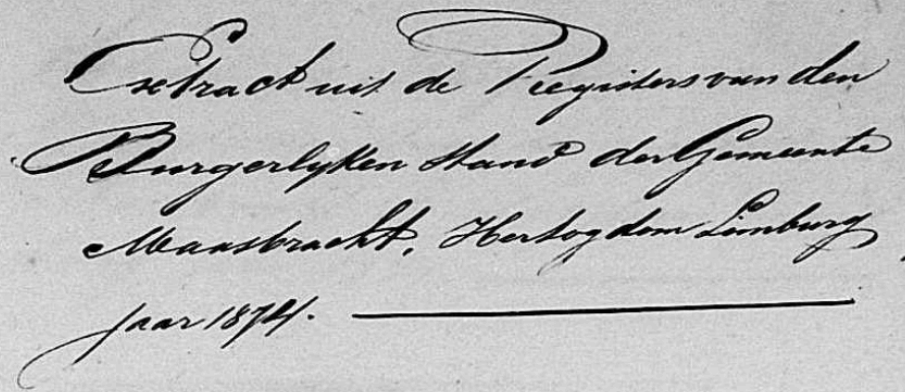 Extract uit de Registers van den
Burgerlyken Stand der Gemeente
Maasbracht, Hertogdom Limburg,
jaar 1874.